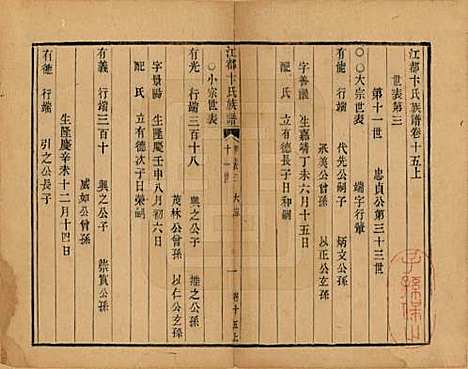 江都卞氏族譜卷十五上
世表第三
第十一世 忠貞公第三十三世
○○大宗世表 端字行輩
有 行端三百十 代先公嗣子 炳文公孫
承美公曾孫 以正公玄孫
字善 生嘉靖丁未六月十五日
配氏 立有德長子日和嗣
江都卞氏族譜
十一世 大宗
一 卷十五上
○小宗世表
有光 行端三百十八 興之公子 維之公孫
茂林公曾孫 以仁公玄孫
字景陽 生隆慶壬申八月初六日
配氏 立有德次子日榮嗣
有義 行端三百十 興之公子 崇質公孫
威如公曾孫
生隆慶辛未十二月十四日
有德 行端 引之公長子